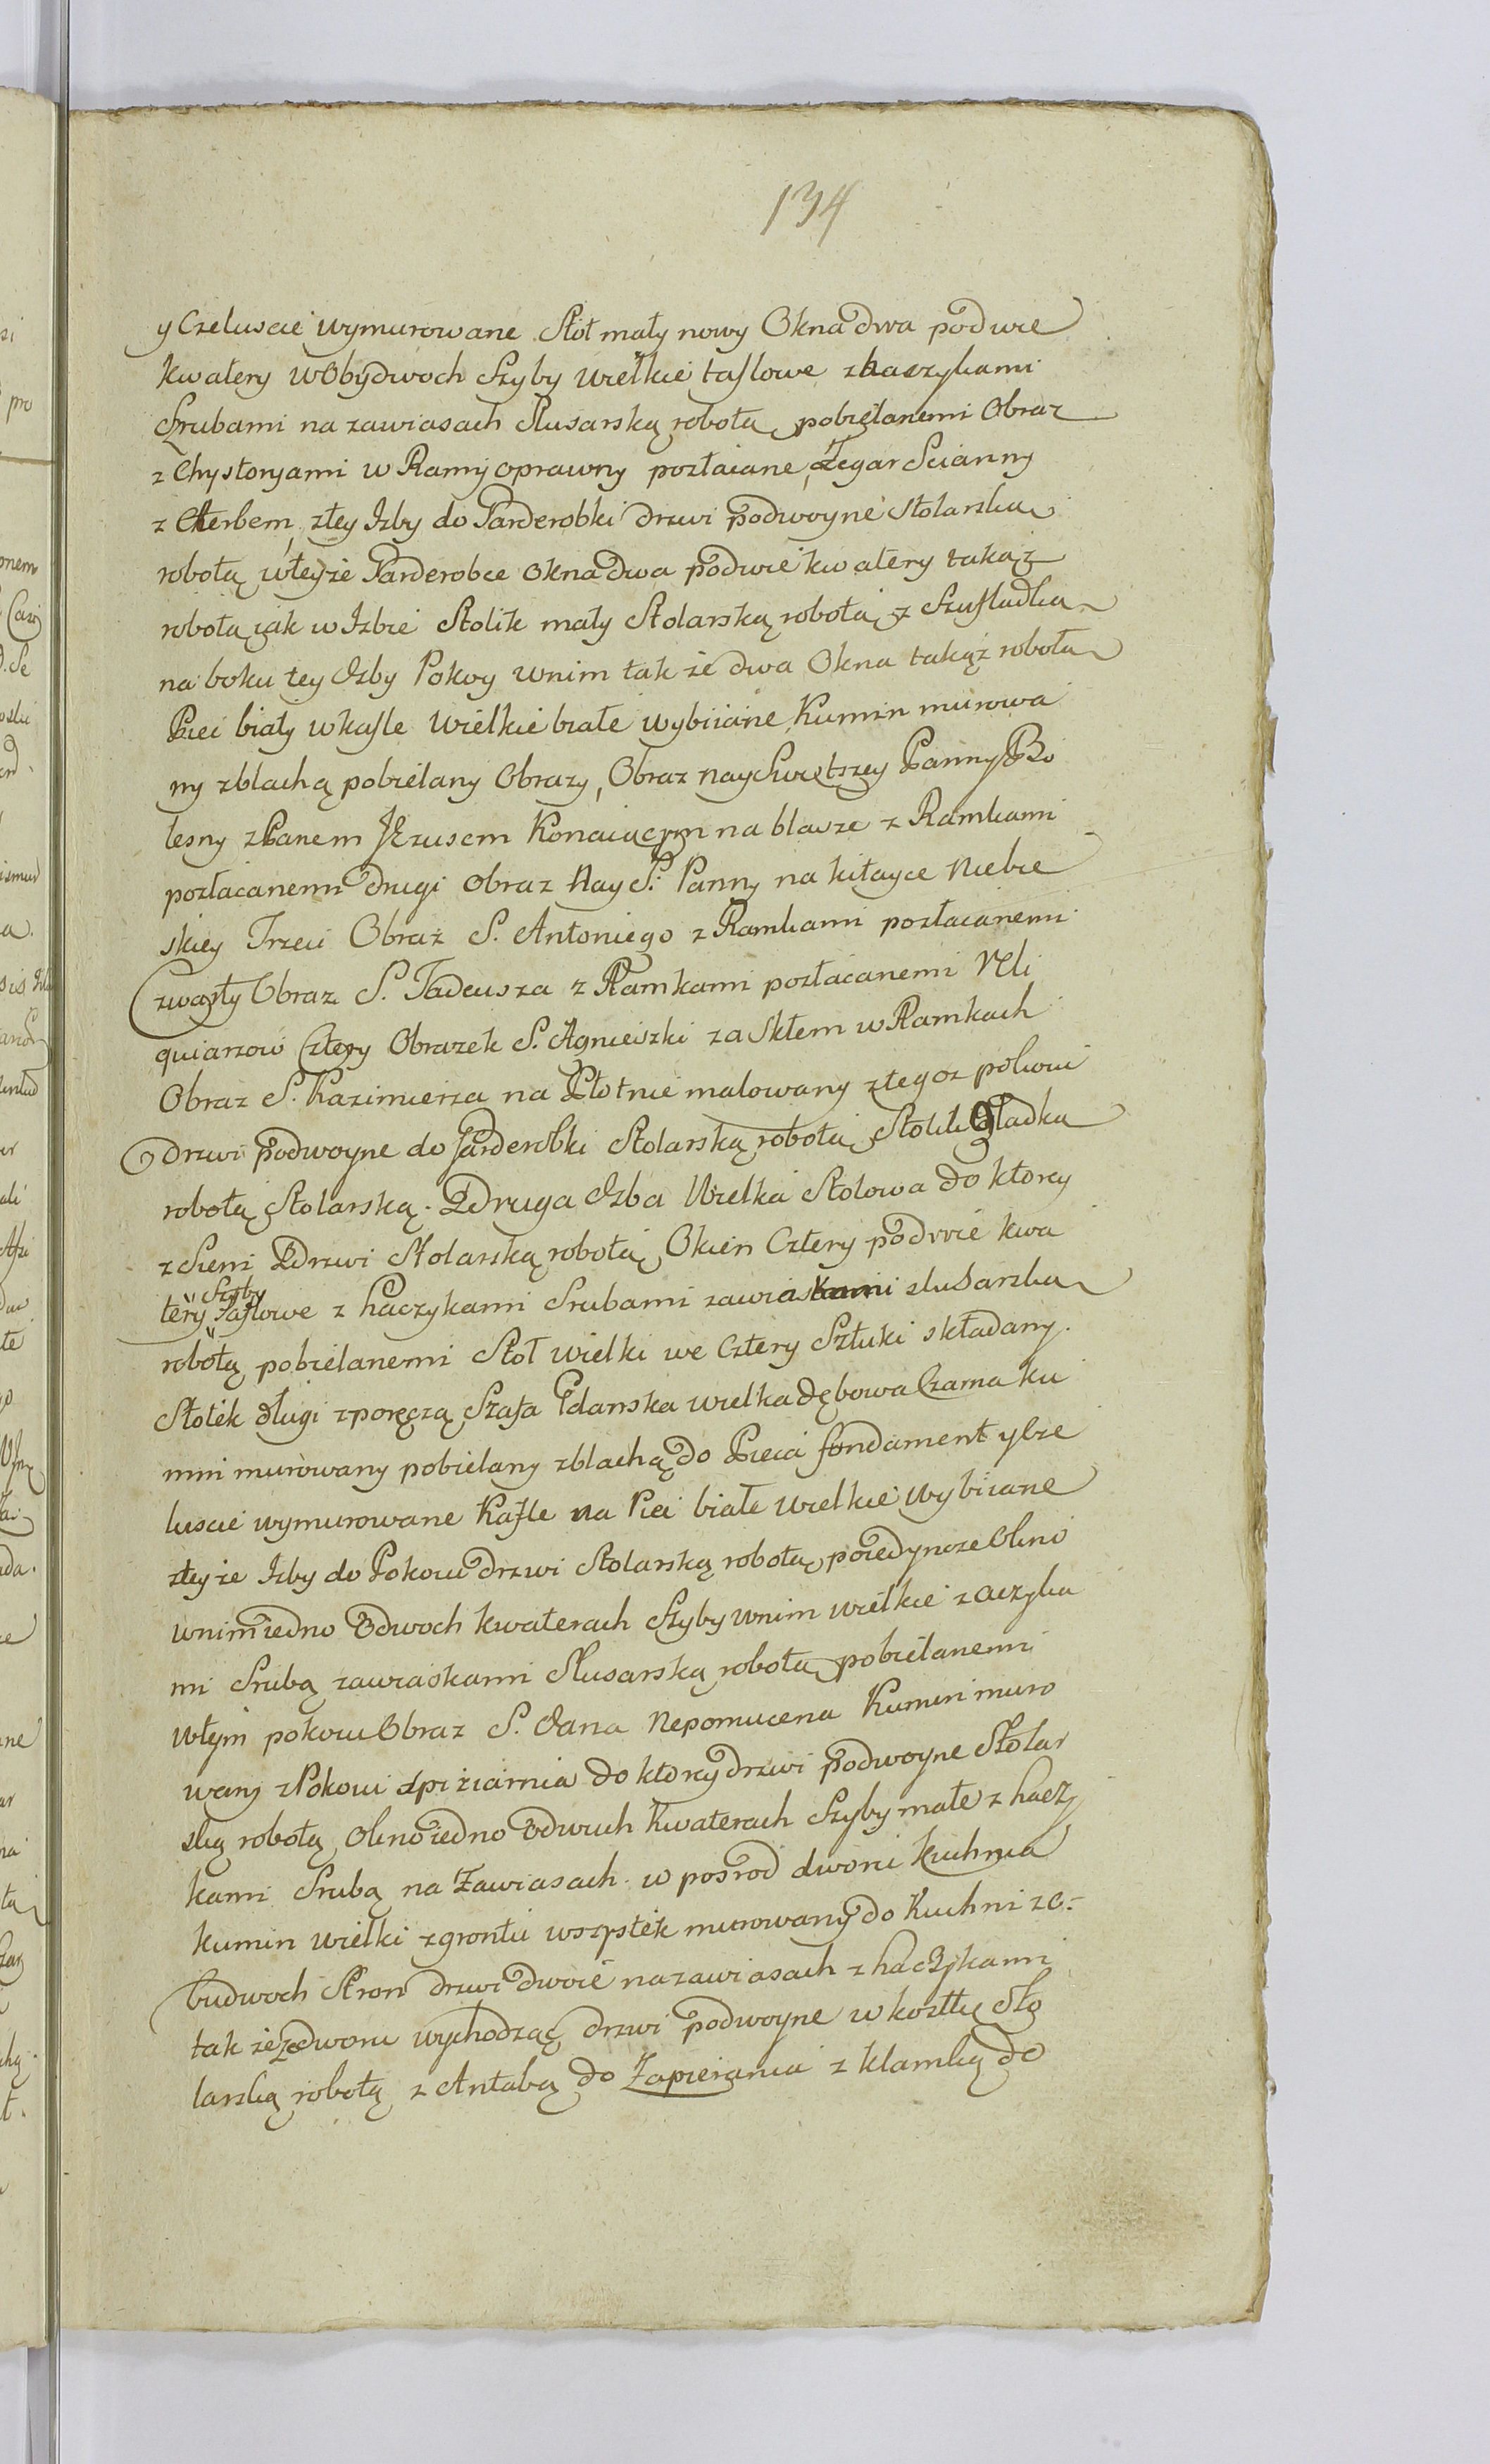 134
y Czeluscie wymurowane Stół mały nowy Okna dwa podwie
kwatery w Obydwoch Szyby wielkie taflowe z haczykami
Szrubami na zawiasach Slusarską robotą pobielanemi Obraz
z Chystoryami w Ramy oprawny pozłacane, Zegar Scianny
z Cherbem, z tey Izby do Garderobki drzwi podwoyne Stolarską
robotą w teyże Garderobce okna dwa podwie kwatery takąż
robotą jak w Izbie Stolik mały Stolarską robotą z Szufladką
na boku tey Izby Pokoy w nim tak że dwa Okna takąż robotą
Piec biały w kafle wielkie białe wybiiane Kumin murowa
ny z blachą pobielany Obrazy, Obraz nayswiętszey Panny Bo
lesny z Panem JEzusem Konaiącym na blasze z Ramkami
pozłacanemi drugi obraz Nay S. Panny na kitayce Niebie
skiey Trzeci Obraz S. Antoniego z Ramkami pozłacanemi
Czwarty Obraz S. Tadeusza z Ramkami pozłacanemi Reli
quiarzow Cztery Obrazek S. Agnieszki za Skłem w Ramkach
Obraz S. Kazimierza na Płotnie malowany z tegoz pokoiu
drzwi podwoyne do Garderobki Stolarską robotą Stolik Gładką
robotą Stolarską. Druga Izba Wielka Stolowa do ktorey
z Sieni Drzwi Stolarską robotą Okien Cztery podwie kwa
Szyby
tery Taflowe z haczykami Srubami zawiaskami slusarską
robotą pobielanemi Stoł wielki we Cztery Sztuki składany.
Stołek długi z poręczą Szafa Gdanska wielka dębowa Czarna ku
min murowany pobielany z blachą do Pieca fondament y Cze
luscie wymurowane Kafle na Piec białe wielkie wybiiane
z tey że Izby do Pokoiu drzwi Stolarską robotą poiedyncze Okno
w nim iedno Odwoch kwaterach Szyby w nim wielkie z aczyka
mi Srubą zawiaskami Slusarską robotą pobielanemi
w tym pokoiu Obraz S. Jana Nepomucena Kumin muro
wany z Pokoiu spiżarnia do ktorey drzwi podwoyne Stolar
ską robotą okno iedno Odwuch Kwaterach Szyby małe z haczy
kami Srubą na Zawiasach w posrod dworu kuchnia
kumin wielki z grontu wszystek murowany do Kuchni zo-
budwoch Stron drzwi dwoie na zawiasach z haczykami
tak że ze dworu wychodząc drzwi podwoyne w kostkę Sto
larską robotą z Antabą do Zapierania z klamką do